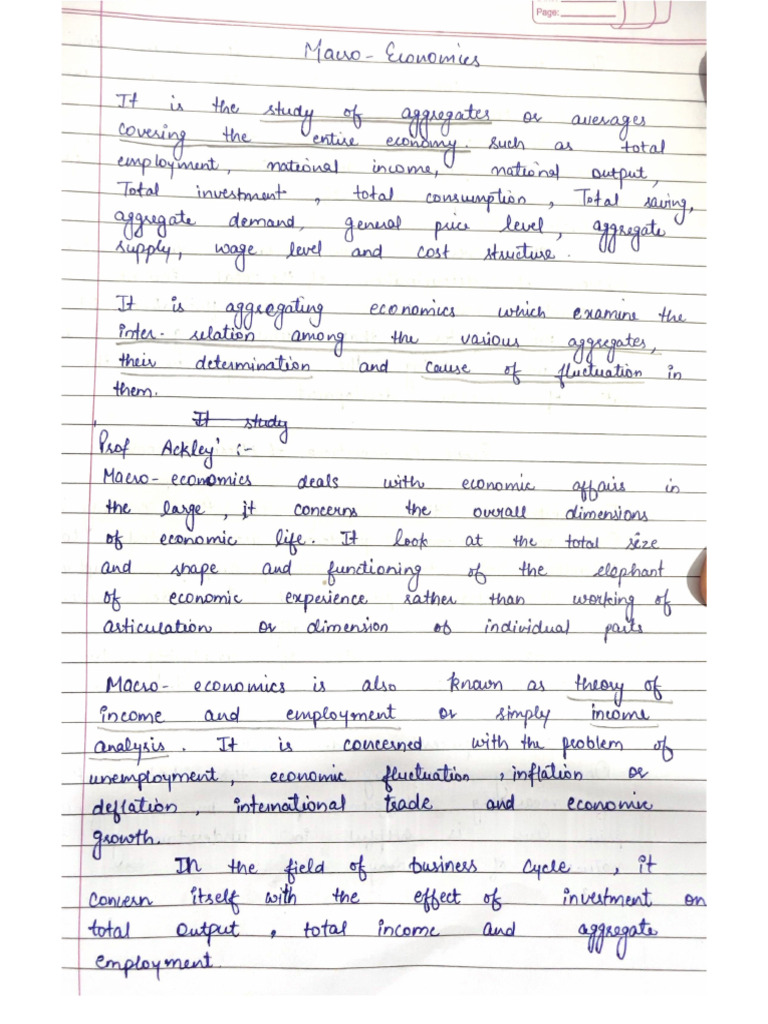 Page:
Macro-Economics
It is the study of aggregates or averages
covering the entire economy. such as total
employment, national income, national output,
Total investment, total consumption, Total saving,
aggregate demand, general price level, aggregate
supply, wage level and cost structure.
It is aggregating economics which examine the
inter-relation among the various aggregates,
their determination and cause of fluctuation in
them.
It study
Prof Ackley' :-
Macro-economics deals with economic affairs in
the large, it concerns the overall dimensions
of economic life. It look at the total size
and shape and functioning of the elephant
of economic experience rather than working of
articulation or dimension of individual parts
Macro-economics is also known as theory of
income and employment or simply income
analysis. It is concerned with the problem of
unemployment, economic fluctuation, inflation or
deflation, international trade and economic
growth.
In the field of business cycle, it
concern itself with the effect of investment on
total output, total income and aggregate
employment.